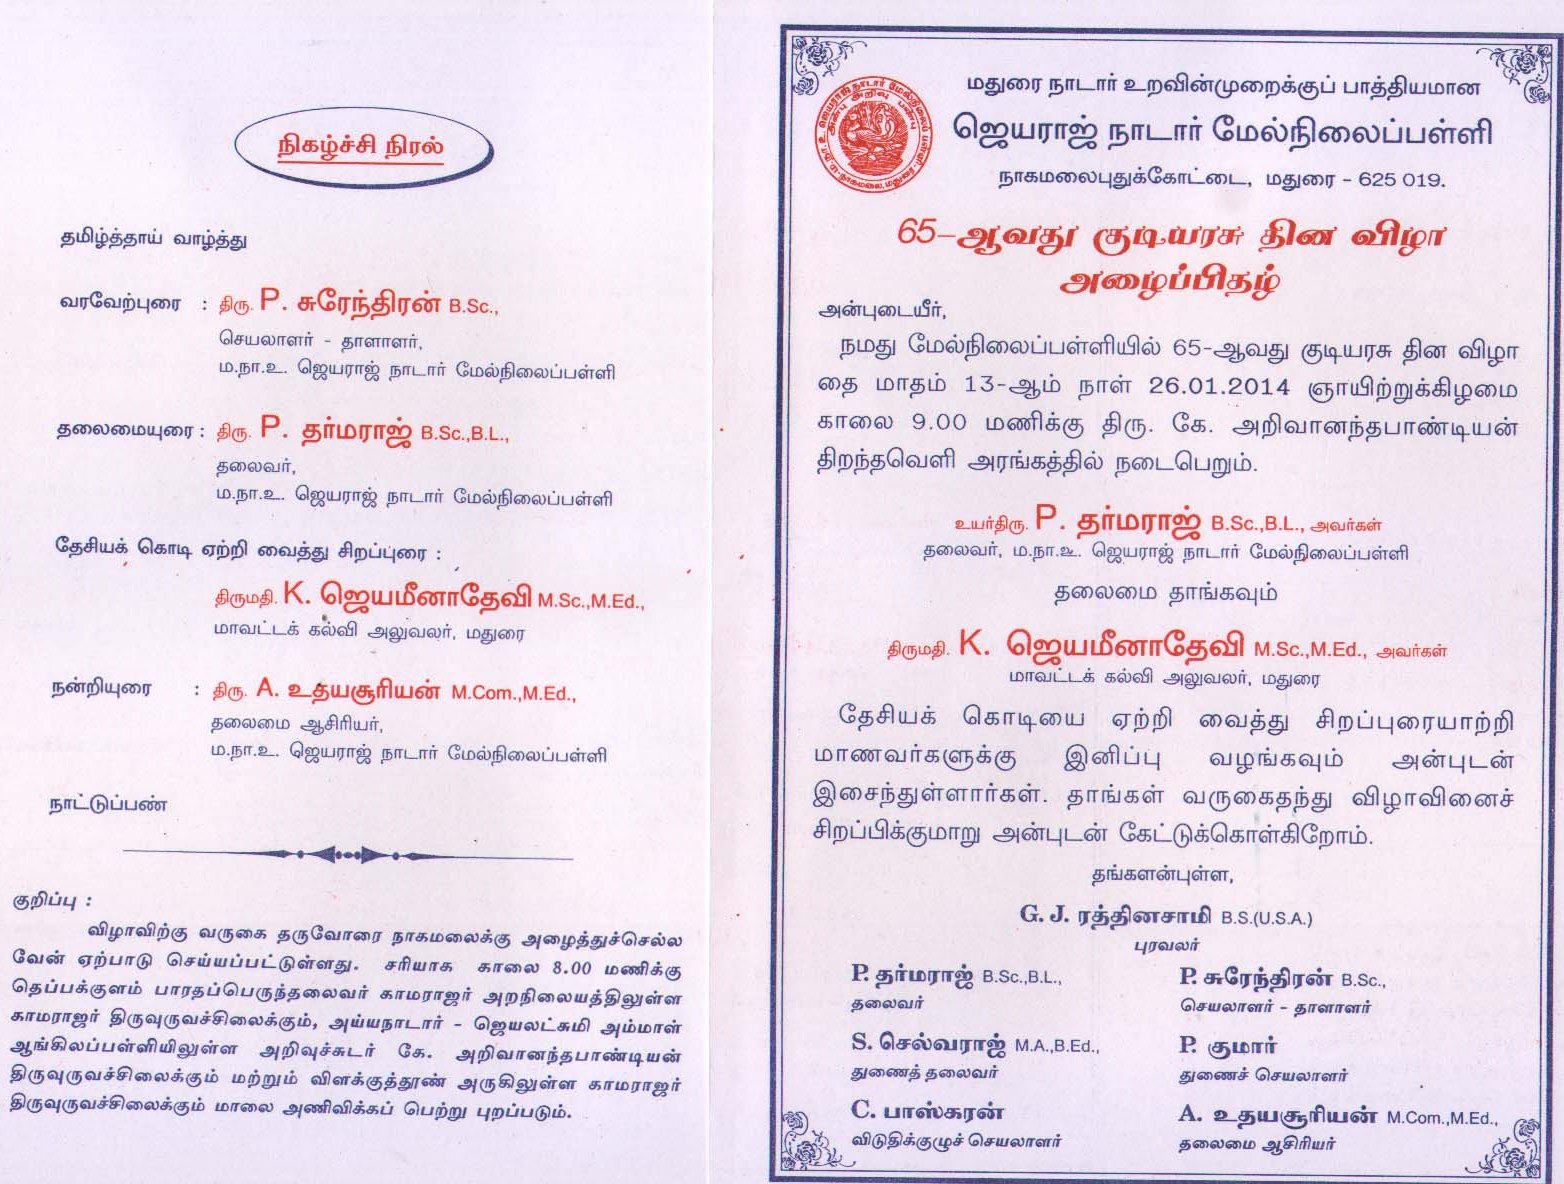 நிகழ்ச்சி நிரல்
தமிழ்த்தாய் வாழ்த்து
வரவேற்புரை : திரு. P. சுரேந்திரன் B.Sc.,
செயலாளர் - தாளாளர்,
ம.நா.உ. ஜெயராஜ் நாடார் மேல்நிலைப்பள்ளி
தலைமையுரை : திரு. P. தர்மராஜ் B.Sc.,B.L.,
தலைவர்,
ம.நா.உ. ஜெயராஜ் நாடார் மேல்நிலைப்பள்ளி
தேசியக் கொடி ஏற்றி வைத்து சிறப்புரை :
திருமதி. K. ஜெயமீனாதேவி M.Sc.,M.Ed.,
மாவட்டக் கல்வி அலுவலர், மதுரை
நன்றியுரை : திரு. A. உதயசூரியன் M.Com.,M.Ed.,
தலைமை ஆசிரியர்,
ம.நா.உ. ஜெயராஜ் நாடார் மேல்நிலைப்பள்ளி
நாட்டுப்பண்
குறிப்பு :
விழாவிற்கு வருகை தருவோரை நாகமலைக்கு அழைத்துச்செல்ல
வேன் ஏற்பாடு செய்யப்பட்டுள்ளது. சரியாக காலை 8.00 மணிக்கு
தெப்பக்குளம் பாரதப்பெருந்தலைவர் காமராஜர் அறநிலையத்திலுள்ள
காமராஜர் திருவுருவச்சிலைக்கும், அய்யநாடார் - ஜெயலட்சுமி அம்மாள்
ஆங்கிலப்பள்ளியிலுள்ள அறிவுச்சுடர் கே. அறிவானந்தபாண்டியன்
திருவுருவச்சிலைக்கும் மற்றும் விளக்குத்தூண் அருகிலுள்ள காமராஜர்
திருவுருவச்சிலைக்கும் மாலை அணிவிக்கப் பெற்று புறப்படும்.
மதுரை நாடார் உறவின்முறைக்குப் பாத்தியமான
ஜெயராஜ் நாடார் மேல்நிலைப்பள்ளி
நாகமலைபுதுக்கோட்டை, மதுரை - 625 019.
65-ஆவது குடியரசு தின விழா
அழைப்பிதழ்
அன்புடையீர்,
நமது மேல்நிலைப்பள்ளியில் 65-ஆவது குடியரசு தின விழா
தை மாதம் 13-ஆம் நாள் 26.01.2014 ஞாயிற்றுக்கிழமை
காலை 9.00 மணிக்கு திரு. கே. அறிவானந்தபாண்டியன்
திறந்தவெளி அரங்கத்தில் நடைபெறும்.
உயர்திரு. P. தர்மராஜ் B.Sc.,B.L., அவர்கள்
தலைவர், ம.நா.உ. ஜெயராஜ் நாடார் மேல்நிலைப்பள்ளி
தலைமை தாங்கவும்
திருமதி. K. ஜெயமீனாதேவி M.Sc.,M.Ed., அவர்கள்
மாவட்டக் கல்வி அலுவலர், மதுரை
தேசியக் கொடியை ஏற்றி வைத்து சிறப்புரையாற்றி
மாணவர்களுக்கு இனிப்பு வழங்கவும் அன்புடன்
இசைந்துள்ளார்கள். தாங்கள் வருகைதந்து விழாவினைச்
சிறப்பிக்குமாறு அன்புடன் கேட்டுக்கொள்கிறோம்.
தங்களன்புள்ள,
G. J. ரத்தினசாமி B.S.(U.S.A.)
புரவலர்
P. தர்மராஜ் B.Sc.,B.L.,
தலைவர்
P. சுரேந்திரன் B.Sc.,
செயலாளர் - தாளாளர்
S. செல்வராஜ் M.A.,B.Ed.,
துணைத் தலைவர்
P. குமார்
துணைச் செயலாளர்
C. பாஸ்கரன்
விடுதிக்குழுச் செயலாளர்
A. உதயசூரியன் M.Com.,M.Ed.,
தலைமை ஆசிரியர்